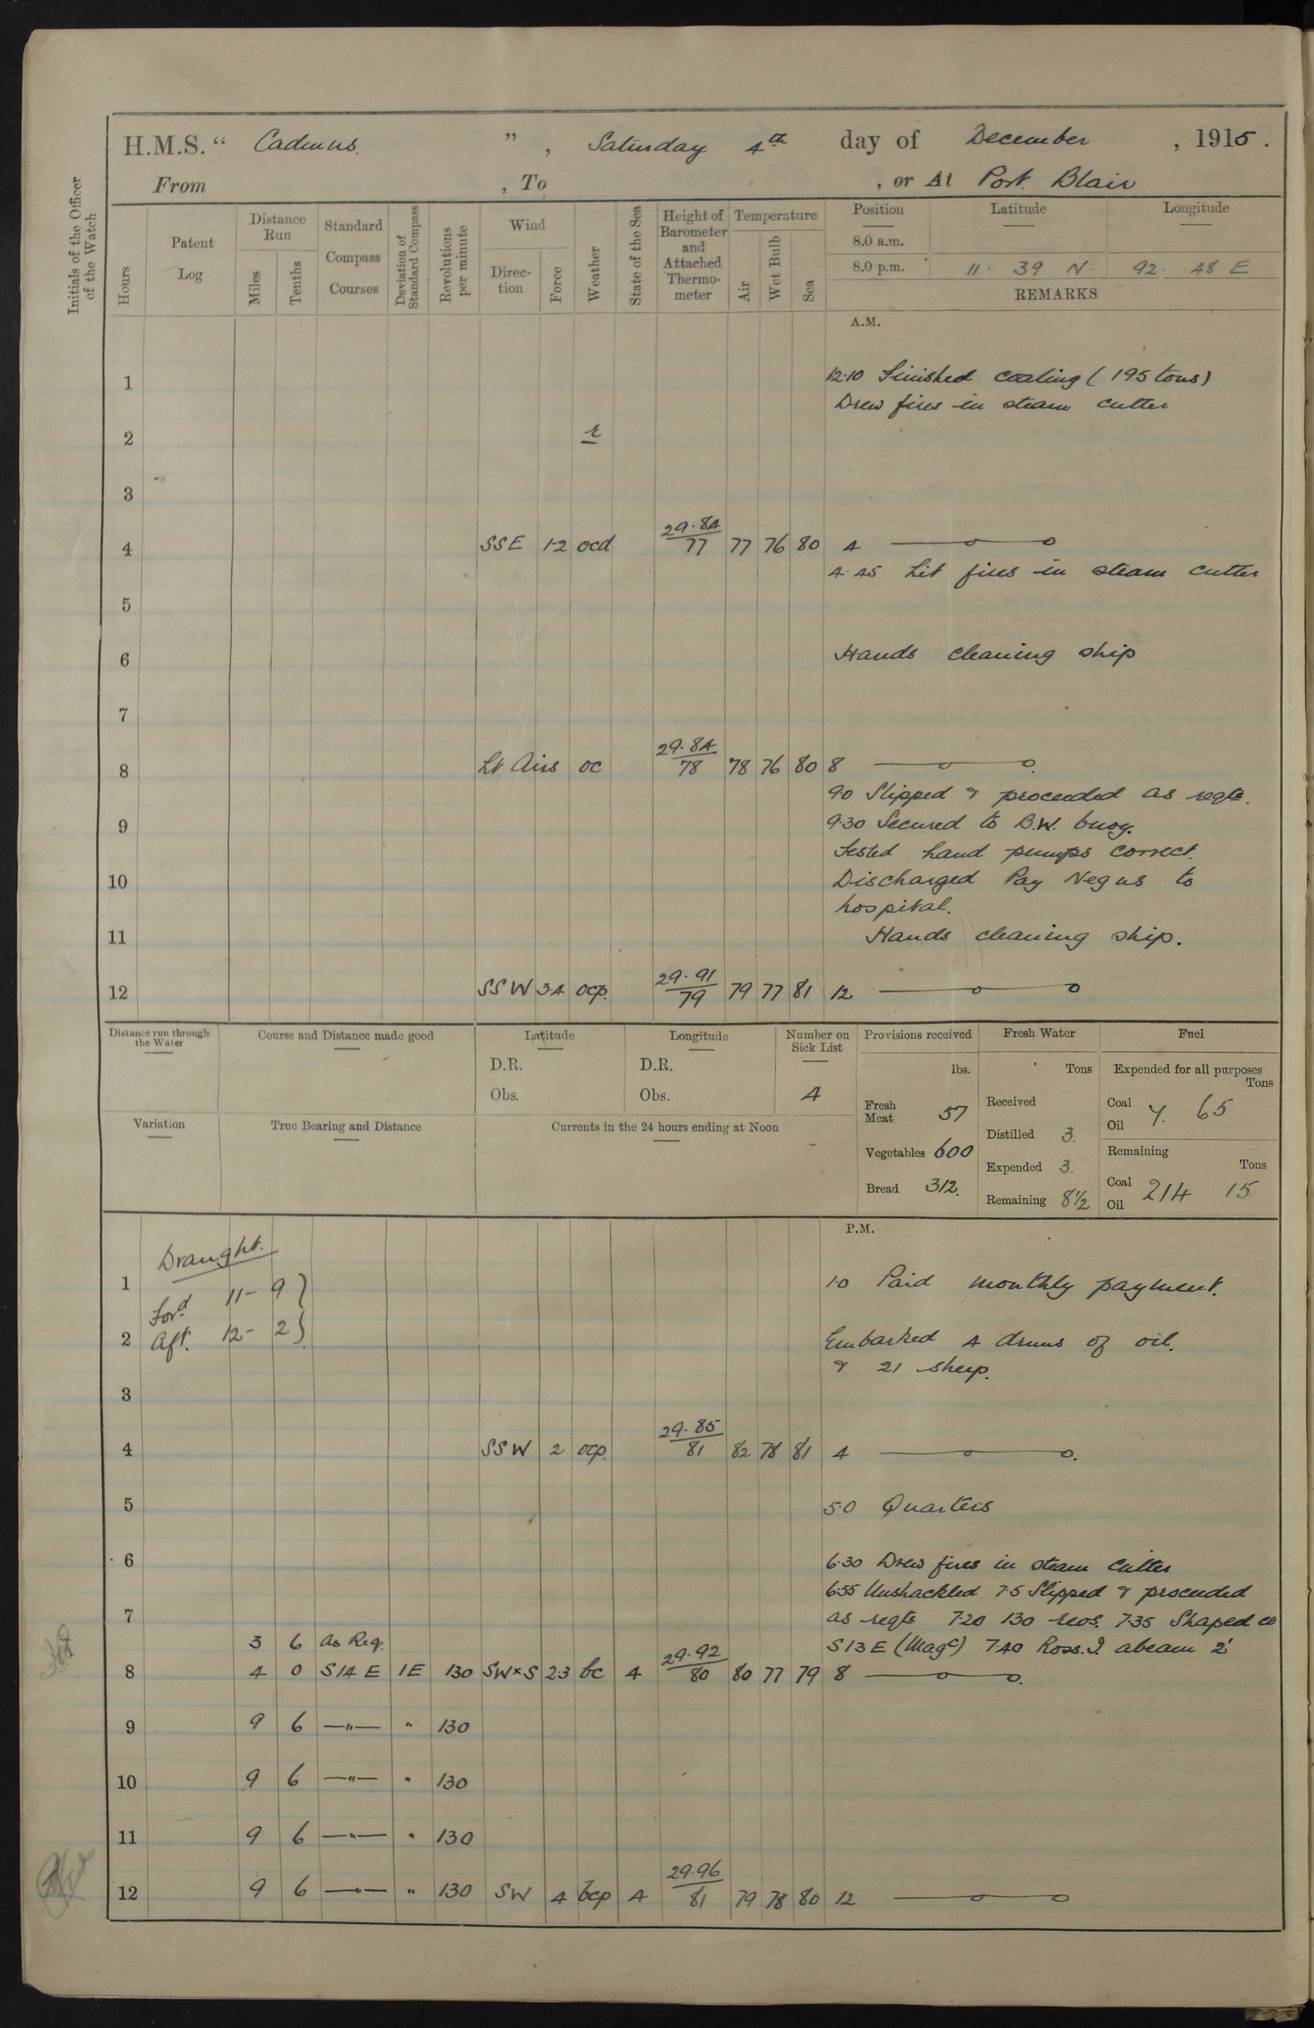 H.M.S. " Cadmus. ", Saturday 4th day of December, 1915.
From , To , or At Port Blair
Initials of the Officer of the Watch
Hours
Patent Log
Distance Run
Miles
Tenths
Standard Compass Courses
Deviation of Standard Compass
Revolutions per minute
Wind
Direc-tion
Force
Weather
State of the Sea
Height of Barometer and Attached Thermo-meter
Temperature
Air
Wet Bulb
Sea
Position Latitude Longitude
8.0 a.m.
8.0 p.m. 11. 39 N. 92. 48 E
REMARKS
A.M.
1 12.10 Finished coaling (195 tons)
Drew fires in steam cutter
2 r
3
4 SSE 1-2 ocd 29.84/77 77 76 80 4
4.45 Lit fires in steam cutter
5
6 Hands cleaning ship
7
8 Lt Airs oc 29.84/78 78 76 80 8
9.0 Slipped & proceeded as reqte.
9 9.30 Secured to B.W. buoy.
Tested hand pumps correct.
10 Discharged Pay Negus to
hospital.
11 Hands cleaning ship.
12 SSW 3.4 ocp. 29.91/79 79 77 81 12
Distance run through the Water
Course and Distance made good
Latitude
D.R.
Obs.
Longitude
D.R.
Obs.
Number on Sick List
4
Provisions received
lbs.
Fresh Meat 57
Vegetables 600
Bread 312.
Fresh Water
Tons
Received
Distilled 3.
Expended 3.
Remaining 8½
Fuel
Expended for all purposes
Tons
Coal
Oil 7. 65
Remaining
Tons
Coal
Oil 214 15
Variation
True Bearing and Distance
Currents in the 24 hours ending at Noon
P.M.
Draught.
1 Ford 11- 9 } 1.0 Paid monthly payment.
2 Aft. 12- 2 } Embarked 4 drums of oil.
& 21 sheep.
3
4 SSW 2 ocp. 29.85/81 82 78 81 4
5 5.0 Quarters
6 6.30 Drew fires in steam cutter
6.55 Unshackled 7.5 Slipped & proceeded
7 as reqte 7.20 130 revs. 7.35 Shaped co
3 6 as Req. S13E (Magc) 7.40 Ross. I. abeam 2'
8 4 0 S14E 1E 130 SW×S 2.3 bc 4 29.92/80 80 77 79 8
9 9 6 —"— " 130
10 9 6 —"— " 130
11 9 6 —"— " 130
12 9 6 —"— " 130 SW 4 bcp 4 29.96/81 79 78 80 12